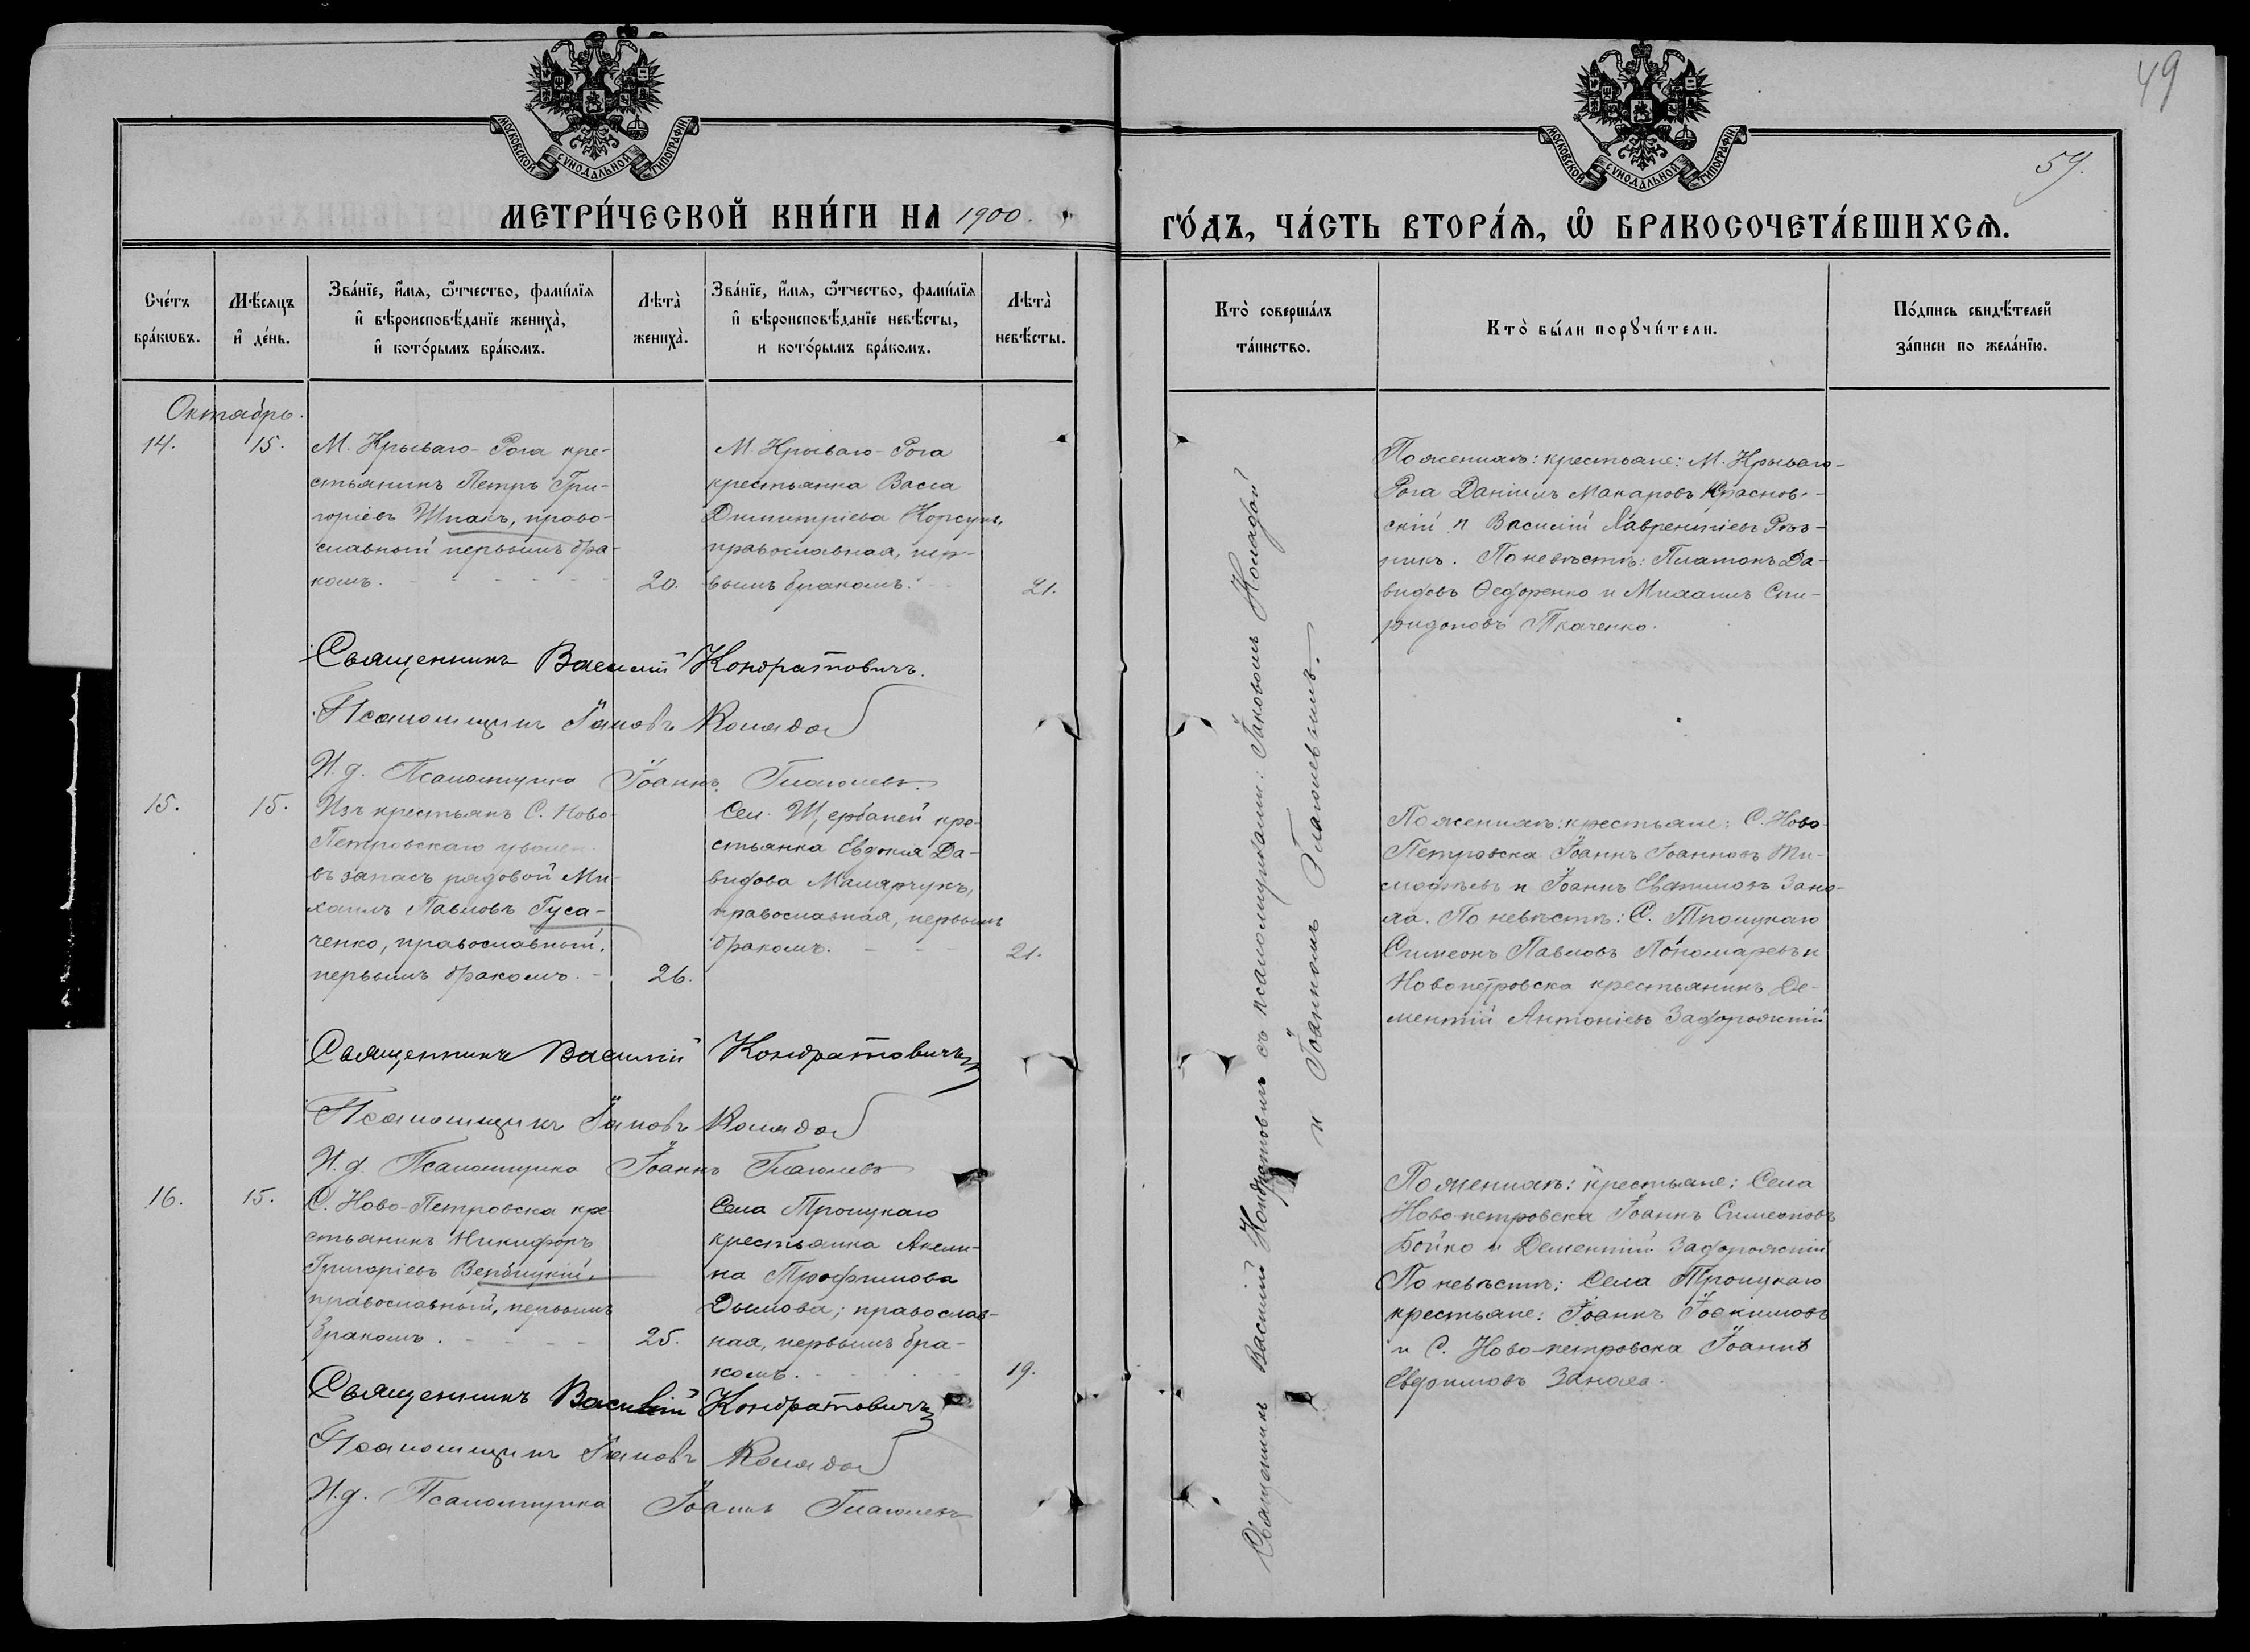 49
МОСКОВСКОЙ СѴНОДАЛЬНОЙ ТИПОГРАФІИ
МОСКОВСКОЙ СѴНОДАЛЬНОЙ ТИПОГРАФІИ
59.
МЕТРИ́ЧЕСКОЙ КНИ́ГИ НА 1900.
ГО́ДЪ, ЧА́СТЬ ВТОРА́Ѧ, Ѽ БРАКОСОЧЕТА́ВШИХСѦ.
Сче́тъ
бра́кѡвъ.
Мѣ́сяцъ
и҆ де́нь.
Зва́нїе, и҆́мѧ, ѻ҆́тчество, фами́лїѧ
и҆ вѣроисповѣ́данїе жениха̀,
и҆ кото́рымъ бра́комъ.
Лѣта̀
жениха̀.
Зва́нїе, и҆́мѧ, ѻ҆́тчество, фами́лїѧ
и҆ вѣроисповѣ́данїе невѣ́сты,
и кото́рымъ бра́комъ.
Лѣта̀
невѣ́сты.
Кто̀ соверша́лъ
та́инство.
Кто̀ бы́ли порꙋчи́тели.
По́дпись свидѣ́телей
за́писи по жела́нїю.
Октябрь.
14.
15.
М. Крываго-Рога кре-
стьянинъ Петръ Гри-
горіевъ Шпакъ, право-
славный первымъ бра-
комъ.
20.
М. Крываго-Рога
крестьянка Васса
Димитріева Корсунь,
православная, пер-
вымъ бракомъ.
21.
По женихѣ: крестьяне: М. Крываго-
Рога Даніилъ Макаровъ Краснов-
скій и Василій Лаврентіевъ Рѣз-
никъ. По невѣстѣ: Платонъ Да-
видовъ Ѳедоренко и Михаилъ Спи-
ридоновъ Ткаченко.
Священникъ Василій Кондратовичъ.
Псаломщикъ Іаковъ Коляда
И. д. Псаломщика Іоаннъ Глаголевъ.
15.
15.
Изъ крестьянъ С. Ново-
Петровскаго уволен.
въ запасъ рядовой Ми-
хаилъ Павловъ Гуса-
ченко, православный,
первымъ бракомъ.
26.
Сел. Щербаней кре-
стьянка Евдокія Да-
видова Малярчукъ,
православная, первымъ
бракомъ.
21.
По женихѣ: крестьяне: С. Ново-
Петровска Іоаннъ Іоанновъ Ти-
моѳѣевъ и Іоаннъ Евдокимовъ Зано-
ха. По невѣстѣ: С. Троицкаго
Симеонъ Павловъ Пономаревъ и
Новопетровска крестьянинъ Де-
ментій Антоніевъ Задорожній
Священникъ Василій Кондратовичъ
Псаломщикъ Іаковъ Коляда
И. д. Псаломщика Іоаннъ Глаголевъ
16.
15.
С. Ново-Петровска кре-
стьянинъ Никифоръ
Григоріевъ Вербицкій,
православный, первымъ
бракомъ.
25.
Села Троицкаго
крестьянка Акели-
на Трофимова
Дымова; православ-
ная, первымъ бра-
комъ.
19.
По женихѣ: крестьяне: Села
Ново-петровска Іоаннъ Симеоновъ
Бойко и Дементій Задорожній
По невѣстѣ: Села Троицкаго
крестьяне: Іоаннъ Іоакимовъ
и С. Ново-петровска Іоаннъ
Евдокимовъ Заноха.
Священникъ Василій Кондратовичъ
Псаломщикъ Іаковъ Коляда
И. д. Псаломщика Іоаннъ Глаголевъ
Священникъ Василій Кондратовичъ съ псаломщиками: Іаковомъ Колядой
и Іоанномъ Глаголевымъ.